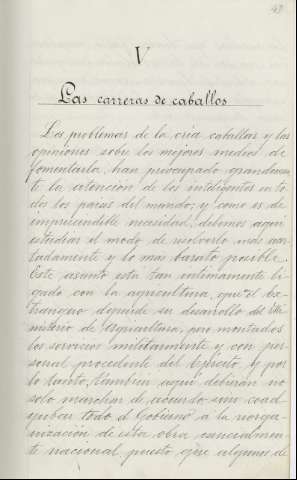 49
V
Las carreras de caballos
Los problemas de la cría caballar y las
opiniones sobre los mejores medios de
fomentarla, han preocupado grandemen
te la atención de los inteligentes en to
dos los países del mundo; y como es de
imprescindible necesidad, debemos aquí
estudiar el modo de resolverlo más acer
tadamente y lo más barato posible.
Este asunto está tan íntimamente li
gado con la agricultura, que en el Ex
trangero depende su desarrollo del Mi
nisterio de Agricultura, pero montados
los servicios militarmente y con per
sonal procedente del Ejército, y por
lo tanto, también aquí debieran no
solo marchar de acuerdo sino coad
yubar todo el Gobierno á la reorga
nización de esta obra esencialmen
te nacional, puesto que algunos de